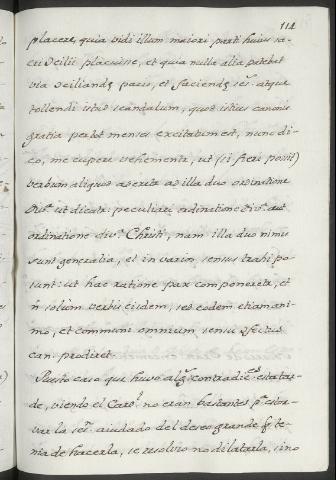 114
placere, quia vidi illum maiori parti huius sa-
cri Scilii placuisse, et quia nulla alia patebat
via sciliandę pacis, et faciendę ses. atque
tollendi istud scandalum, quod istius canonis
gratia per tot menses excitatum est, nunc di-
co, me cupere vehementer, ut (si fieri possit)
verbum aliquod asserit ad illa duo ordinatione
div. ut dicatur peculiari ordinatione div. aut
ordinatione div. Christi, nam illa duo nimis
sunt generalia, et in varios sensus trahi po-
sunt: ut hac ratione pax componeretur, et
n solum verbis eisdem, sed eodem etiam ani-
mo, et communi omnium sensu
can. prodiret.
Puesto caso que huvo alg. contradic. esta tar-
de, viendo el Card. no eran bastantes pa. estor-
var la ses. aiudado del deseo grande q. te-
nia de hacerla, se resolvio no dilatarla, sino